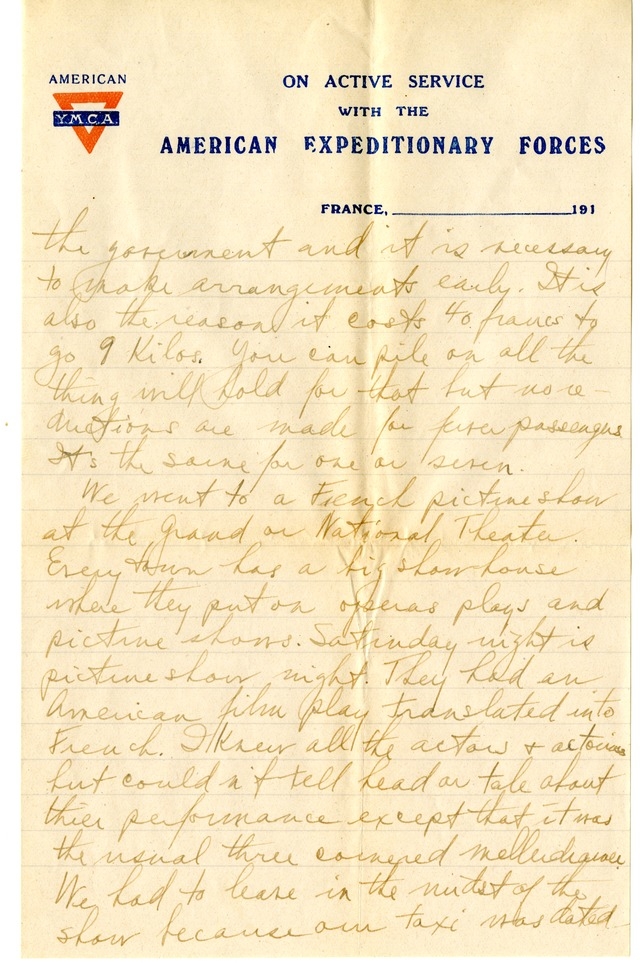 AMERICAN
Y.M.C.A.
ON ACTIVE SERVICE
WITH THE
AMERICAN EXPEDITIONARY FORCES
FRANCE, 191
the government and it is necessary
to make arrangements early. It is
also the reason it costs 40 francs to
go 9 Kilos. You can pile on all the
thing will hold for that but no re-
ductions are made for fewer passengers
It's the same for one or seven.
We went to a French picture show
at the Grand or National Theater.
Every town has a big show house
where they put on operas plays and
picture shows. Saturday night is
picture show night. They had an
American film play translated into
French. I knew all the actors & actresses
but couldn't tell head or tale about
thier performance except that it was
the usual three cornered mellerdrammer
We had to leave in the midst of the
show because our taxi was dated